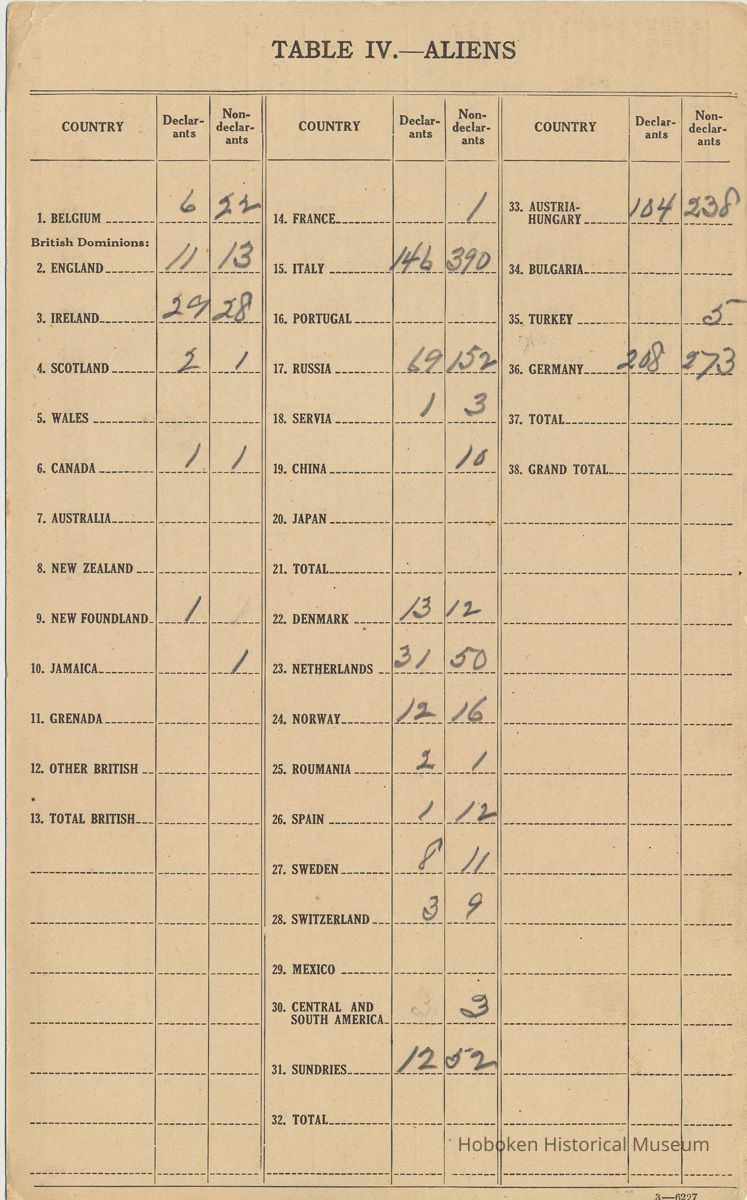 TABLE IV.—ALIENS
COUNTRY Declar-ants Non-declar-ants
1. BELGIUM 6 22
British Dominions:
2. ENGLAND 11 13
3. IRELAND 29 28
4. SCOTLAND 2 1
5. WALES
6. CANADA 1 1
7. AUSTRALIA
8. NEW ZEALAND
9. NEW FOUNDLAND 1
10. JAMAICA 1
11. GRENADA
12. OTHER BRITISH
13. TOTAL BRITISH
COUNTRY Declar-ants Non-declar-ants
14. FRANCE 1
15. ITALY 146 390
16. PORTUGAL
17. RUSSIA 69 152
18. SERVIA 1 3
19. CHINA 10
20. JAPAN
21. TOTAL
22. DENMARK 13 12
23. NETHERLANDS 31 50
24. NORWAY 12 16
25. ROUMANIA 2 1
26. SPAIN 1 12
27. SWEDEN 8 11
28. SWITZERLAND 3 9
29. MEXICO
30. CENTRAL AND
SOUTH AMERICA 3
31. SUNDRIES 12 52
32. TOTAL
COUNTRY Declar-ants Non-declar-ants
33. AUSTRIA-
HUNGARY 104 238
34. BULGARIA
35. TURKEY 5
36. GERMANY 208 273
37. TOTAL
38. GRAND TOTAL
Hoboken Historical Museum
3—6227